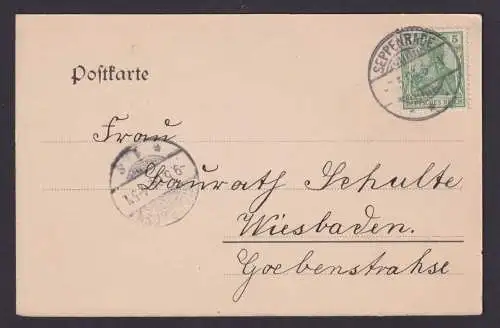 SEPPENRADE
5
Postkarte
Frau
Baurath Schulte
Wiesbaden.
Goebenstrahse